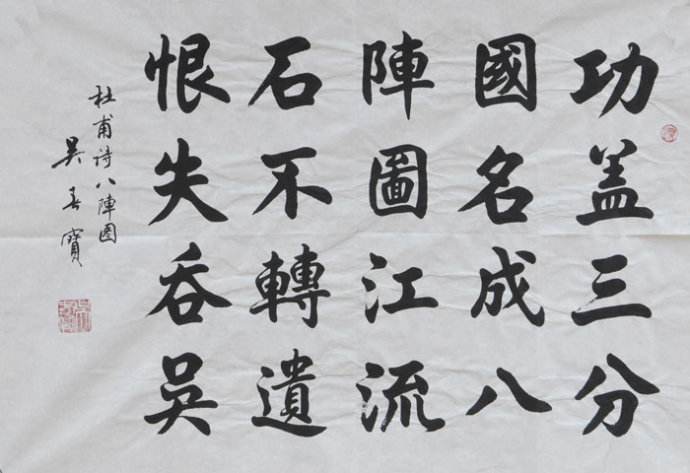 功盖三分
國名成八
陣圖江流
石不轉遺
恨失吞吴
杜甫诗八陣图
吴春寶